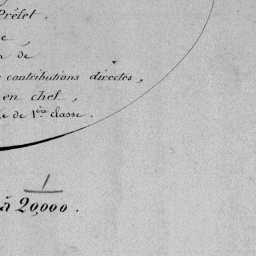 Préfet.
e,
de
contributions directes,
en chef,
e de 1ère classe.
1
à 20,000.